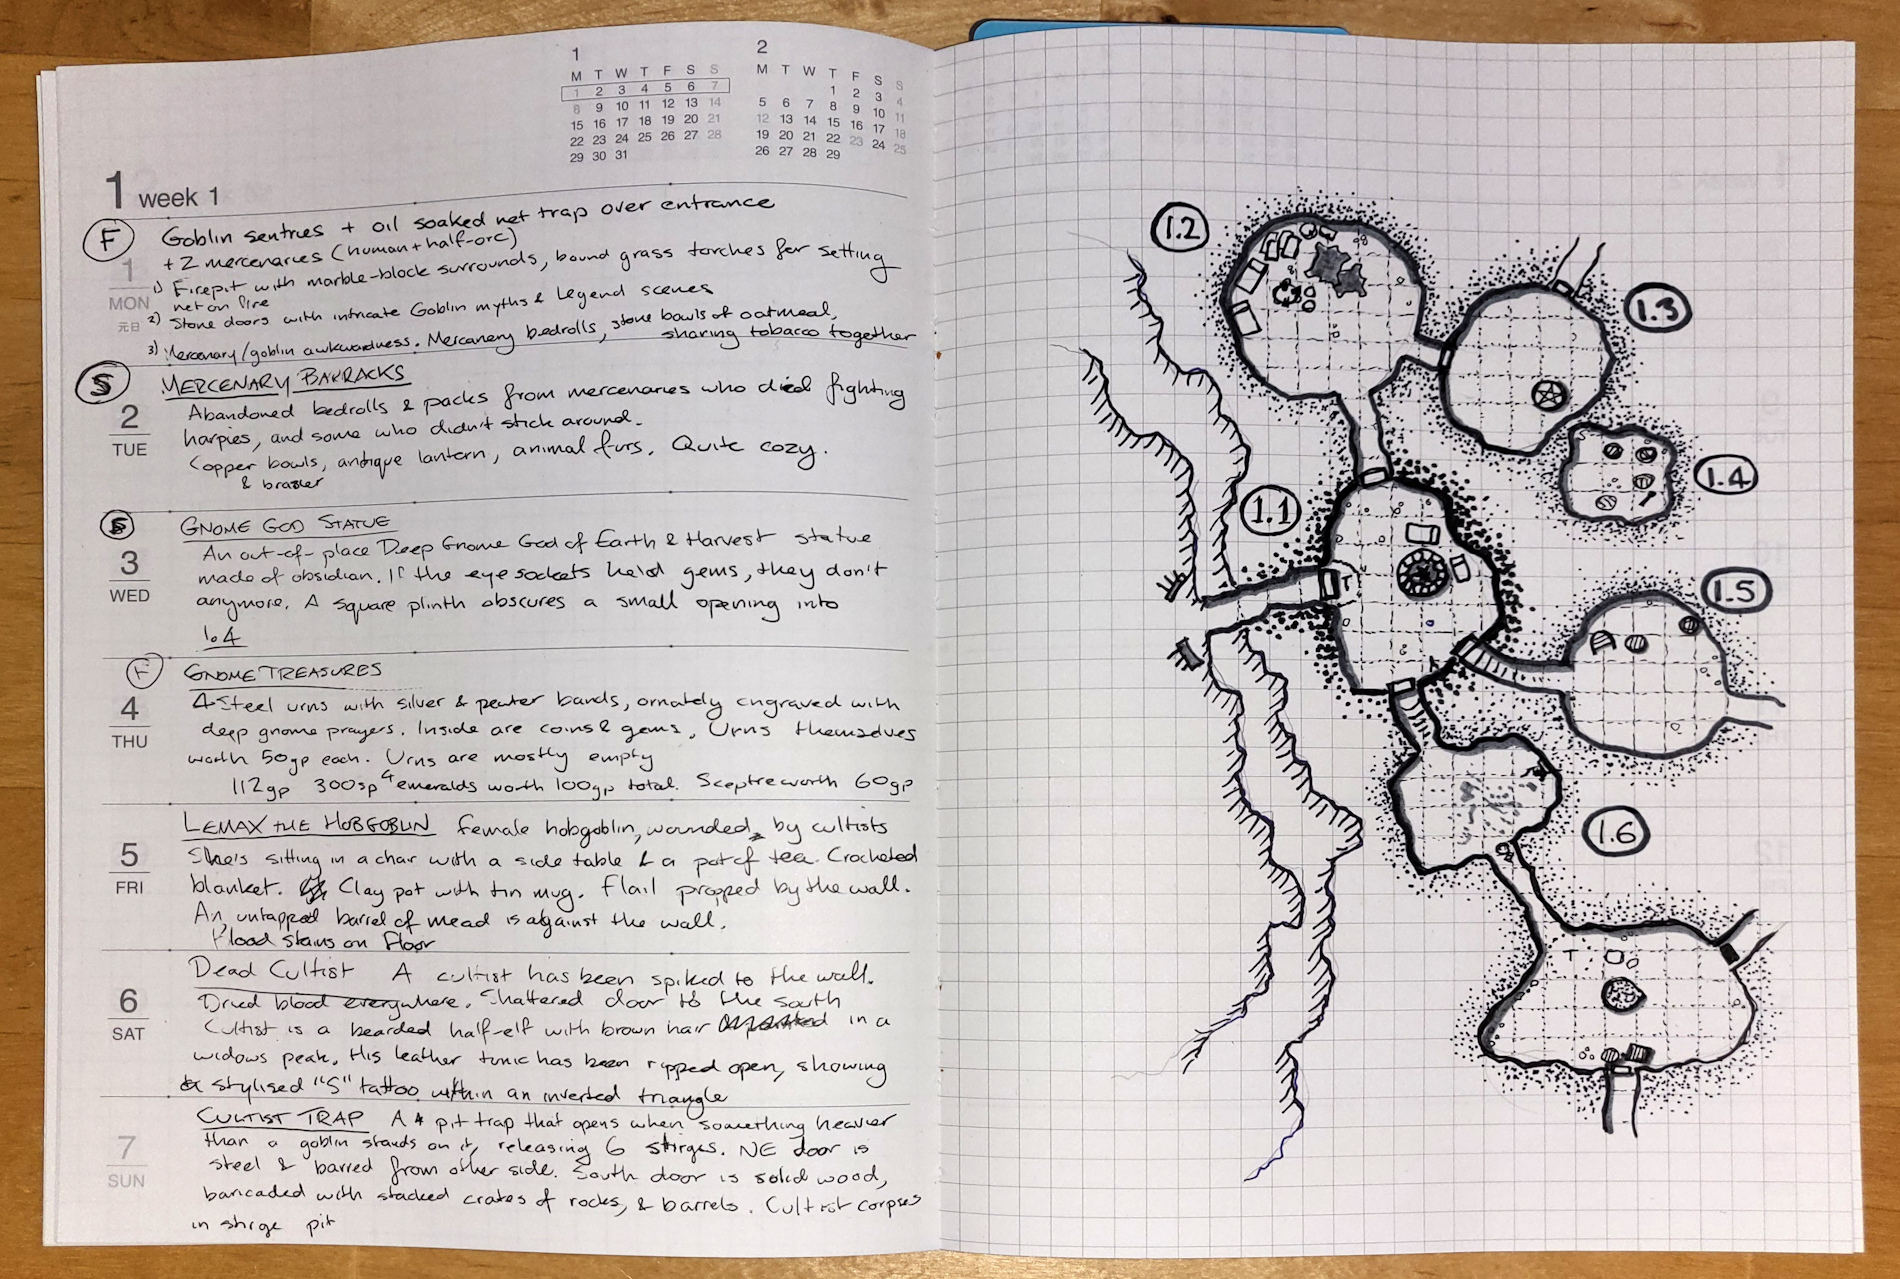 1
M T W T F S S
1 2 3 4 5 6 7
8 9 10 11 12 13 14
15 16 17 18 19 20 21
22 23 24 25 26 27 28
29 30 31
2
M T W T F S S
1 2 3 4
5 6 7 8 9 10 11
12 13 14 15 16 17 18
19 20 21 22 23 24 25
26 27 28 29
1 week 1
F
Goblin sentries + oil soaked net trap over entrance
+ 2 mercenaries (human + half-orc)
1) Firepit with marble-block surrounds, bound grass torches for setting
net on fire
2) Stone doors with intricate Goblin myths & Legend scenes
3) Mercenary/goblin awkwardness. Mercenary bedrolls, stone bowls of oatmeal,
sharing tobacco together
1
MON
元日
S
MERCENARY BARRACKS
Abandoned bedrolls & packs from mercenaries who died fighting
harpies, and some who didn't stick around.
Copper bowls, antique lantern, animal furs. Quite cozy.
& brazier
2
TUE
S
GNOME GOD STATUE
An out-of-place Deep Gnome God of Earth & Harvest statue
made of obsidian. If the eye sockets held gems, they don't
anymore. A square plinth obscures a small opening into
1.4
3
WED
F
GNOME TREASURES
4 Steel urns with silver & pewter bands, ornately engraved with
deep gnome prayers. Inside are coins & gems. Urns themselves
worth 50gp each. Urns are mostly empty
112gp 300sp 4 emeralds worth 100gp total. Sceptre worth 60gp
4
THU
LEMAX THE HOBGOBLIN female hobgoblin, wounded by cultists
She's sitting in a chair with a side table & a pot of tea. Crocheted
blanket. Clay pot with tin mug. Flail propped by the wall.
An untapped barrel of mead is against the wall.
Blood stains on floor
5
FRI
Dead Cultist A cultist has been spiked to the wall.
Dried blood everywhere. Shattered door to the south
Cultist is a bearded half-elf with brown hair in a
widows peak. His leather tunic has been ripped open, showing
a stylised "S" tattoo within an inverted triangle
6
SAT
CULTIST TRAP A pit trap that opens when something heavier
than a goblin stands on it, releasing 6 stirges. NE door is
steel & barred from other side. South door is solid wood,
baricaded with stacked crates of rocks, & barrels. Cultist corpses
in stirge pit
7
SUN
1.2
1.3
1.4
1.1
T
1.5
1.6
T